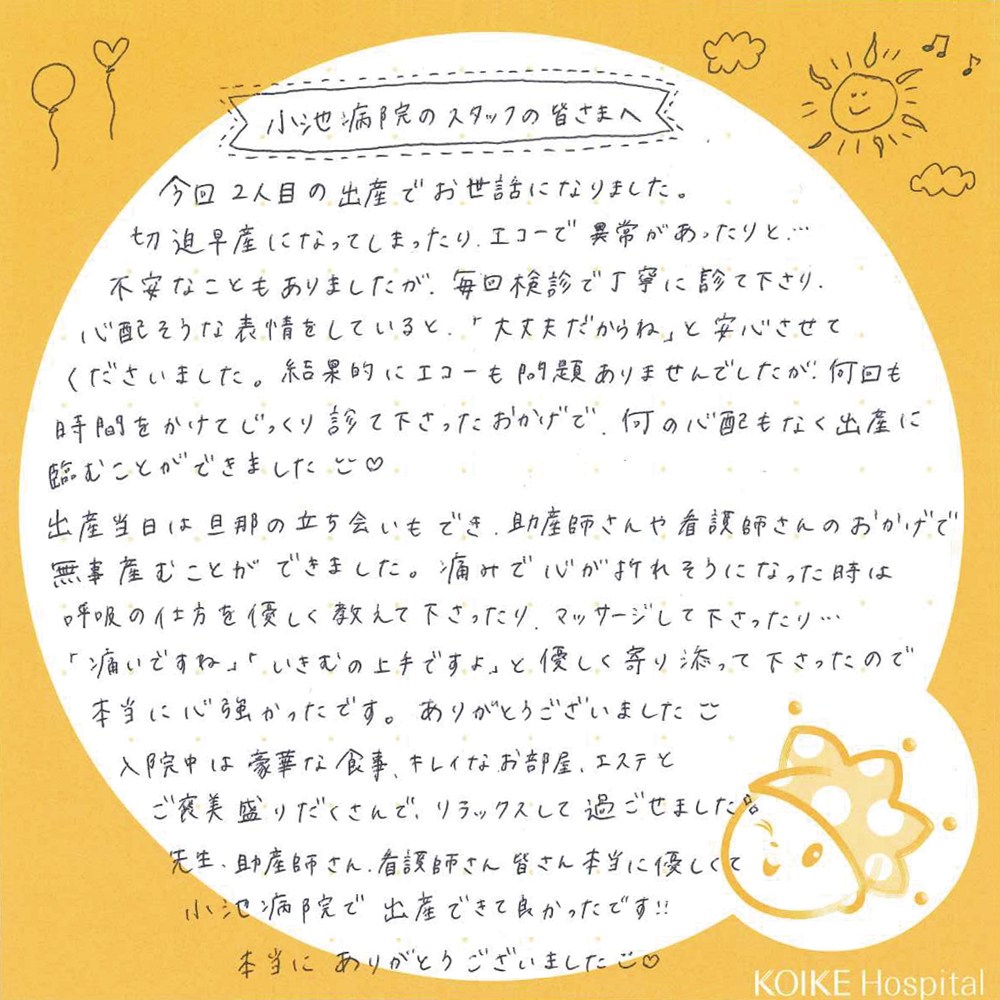 小池病院のスタッフの皆さまへ
今回2人目の出産でお世話になりました。
切迫早産になってしまったり、エコーで異常があったりと…
不安なこともありましたが、毎回検診で丁寧に診て下さり、
心配そうな表情をしていると、「大丈夫だからね」と安心させて
くださいました。結果的にエコーも問題ありませんでしたが、何回も
時間をかけてじっくり診て下さったおかげで、何の心配もなく出産に
臨むことができました♡
出産当日は旦那の立ち会いもでき、助産師さんや看護師さんのおかげで
無事産むことができました。痛みで心が折れそうになった時は
呼吸の仕方を優しく教えて下さったり、マッサージして下さったり…
「痛いですね」「いきむの上手ですよ」と優しく寄り添って下さったので
本当に心強かったです。ありがとうございました
入院中は豪華な食事、キレイなお部屋、エステと
ご褒美盛りだくさんで、リラックスして過ごせました
先生、助産師さん、看護師さん皆さん本当に優しくて
小池病院で出産できて良かったです!!
本当にありがとうございました♡
KOIKE Hospital